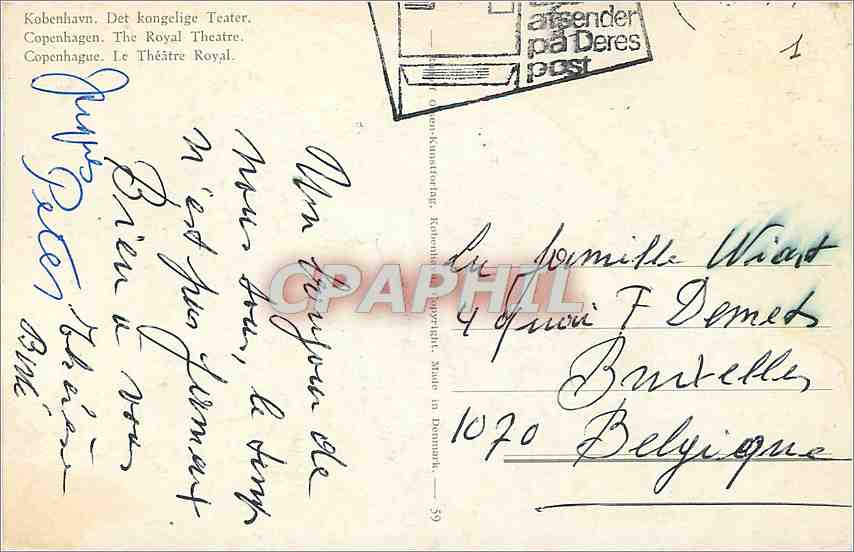 København. Det kongelige Teater.
Copenhagen. The Royal Theatre.
Copenhague. Le Théâtre Royal.
afsender
på Deres
post
1
Un bonjour de
nous tous, le temps
n'est pas fermant
Bien à vous
Peter
Olsen-Kunstforlag, København. Copyright. Made in Denmark. — 59
La famille Wiart
4 quai F Demets
Bruxelles
1070 Belgique
CPAPHIL